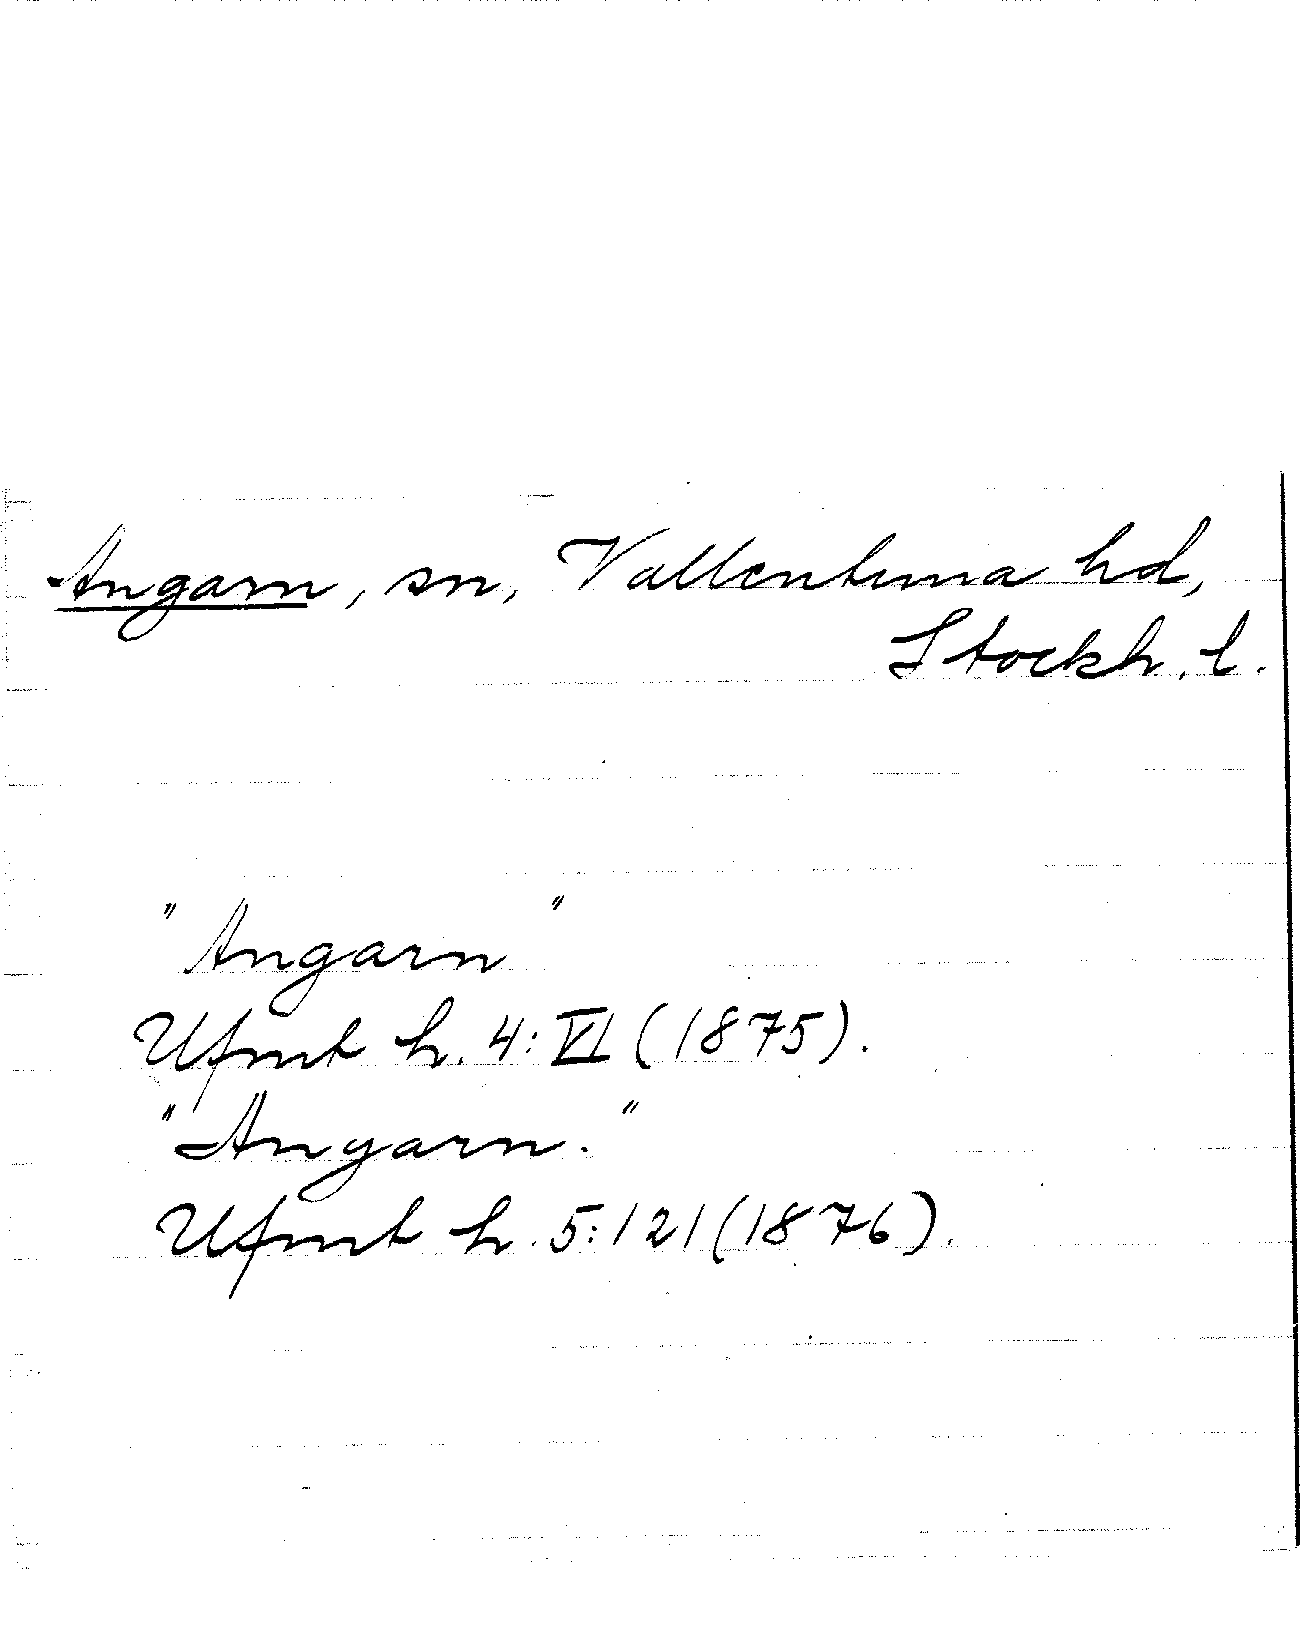 Angarn, sn, Vallentuna hd,
Stockh. l.
"Angarn"
Ufmt h. 4: VI (1875).
"Angarn."
Ufmt h. 5: 121 (1876).